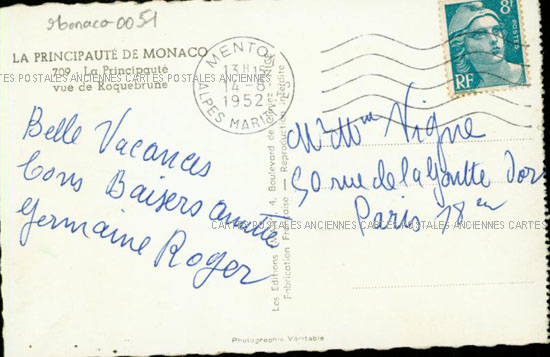 Monaco-0051
LA PRINCIPAUTÉ DE MONACO
709 - La Principauté
vue de Roquebrune
CARTES POSTALES ANCIENNES CARTES POSTALES ANCIENNES
MENTON
13H15
14-8
1952
ALPES MARIT
8F
POSTES
RF
Belle Vacances
bons Baisers amitié
Germaine Roger
Mr Mme Vigne
50 rue de la Goutte d'or
Paris 18em
CARTES POSTALES ANCIENNES CARTES POSTALES ANCIENNES CARTES
Les Editions 4, Boulevard de
Fabrication Française — Reproduction interdite
Photographie Véritable